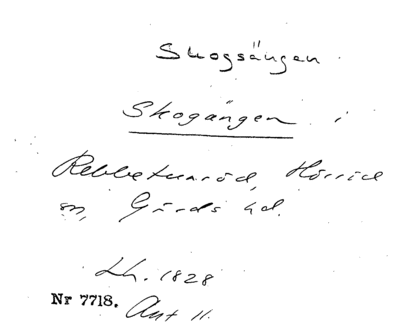 Skogsängen
Skogängen i
Rebbetuaröd, Hörröd
sn, Gärds hd.
Lh. 1828
Nr 7718. Akt 11.